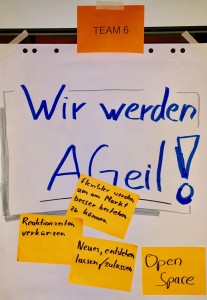 TEAM 6
Wir werden
AGeil!
flexibler werden
um am Markt
besser bestehen
zu können
Reaktionszeiten
verkürzen
Neues, entstehen
lassen/zulassen
Open
Space